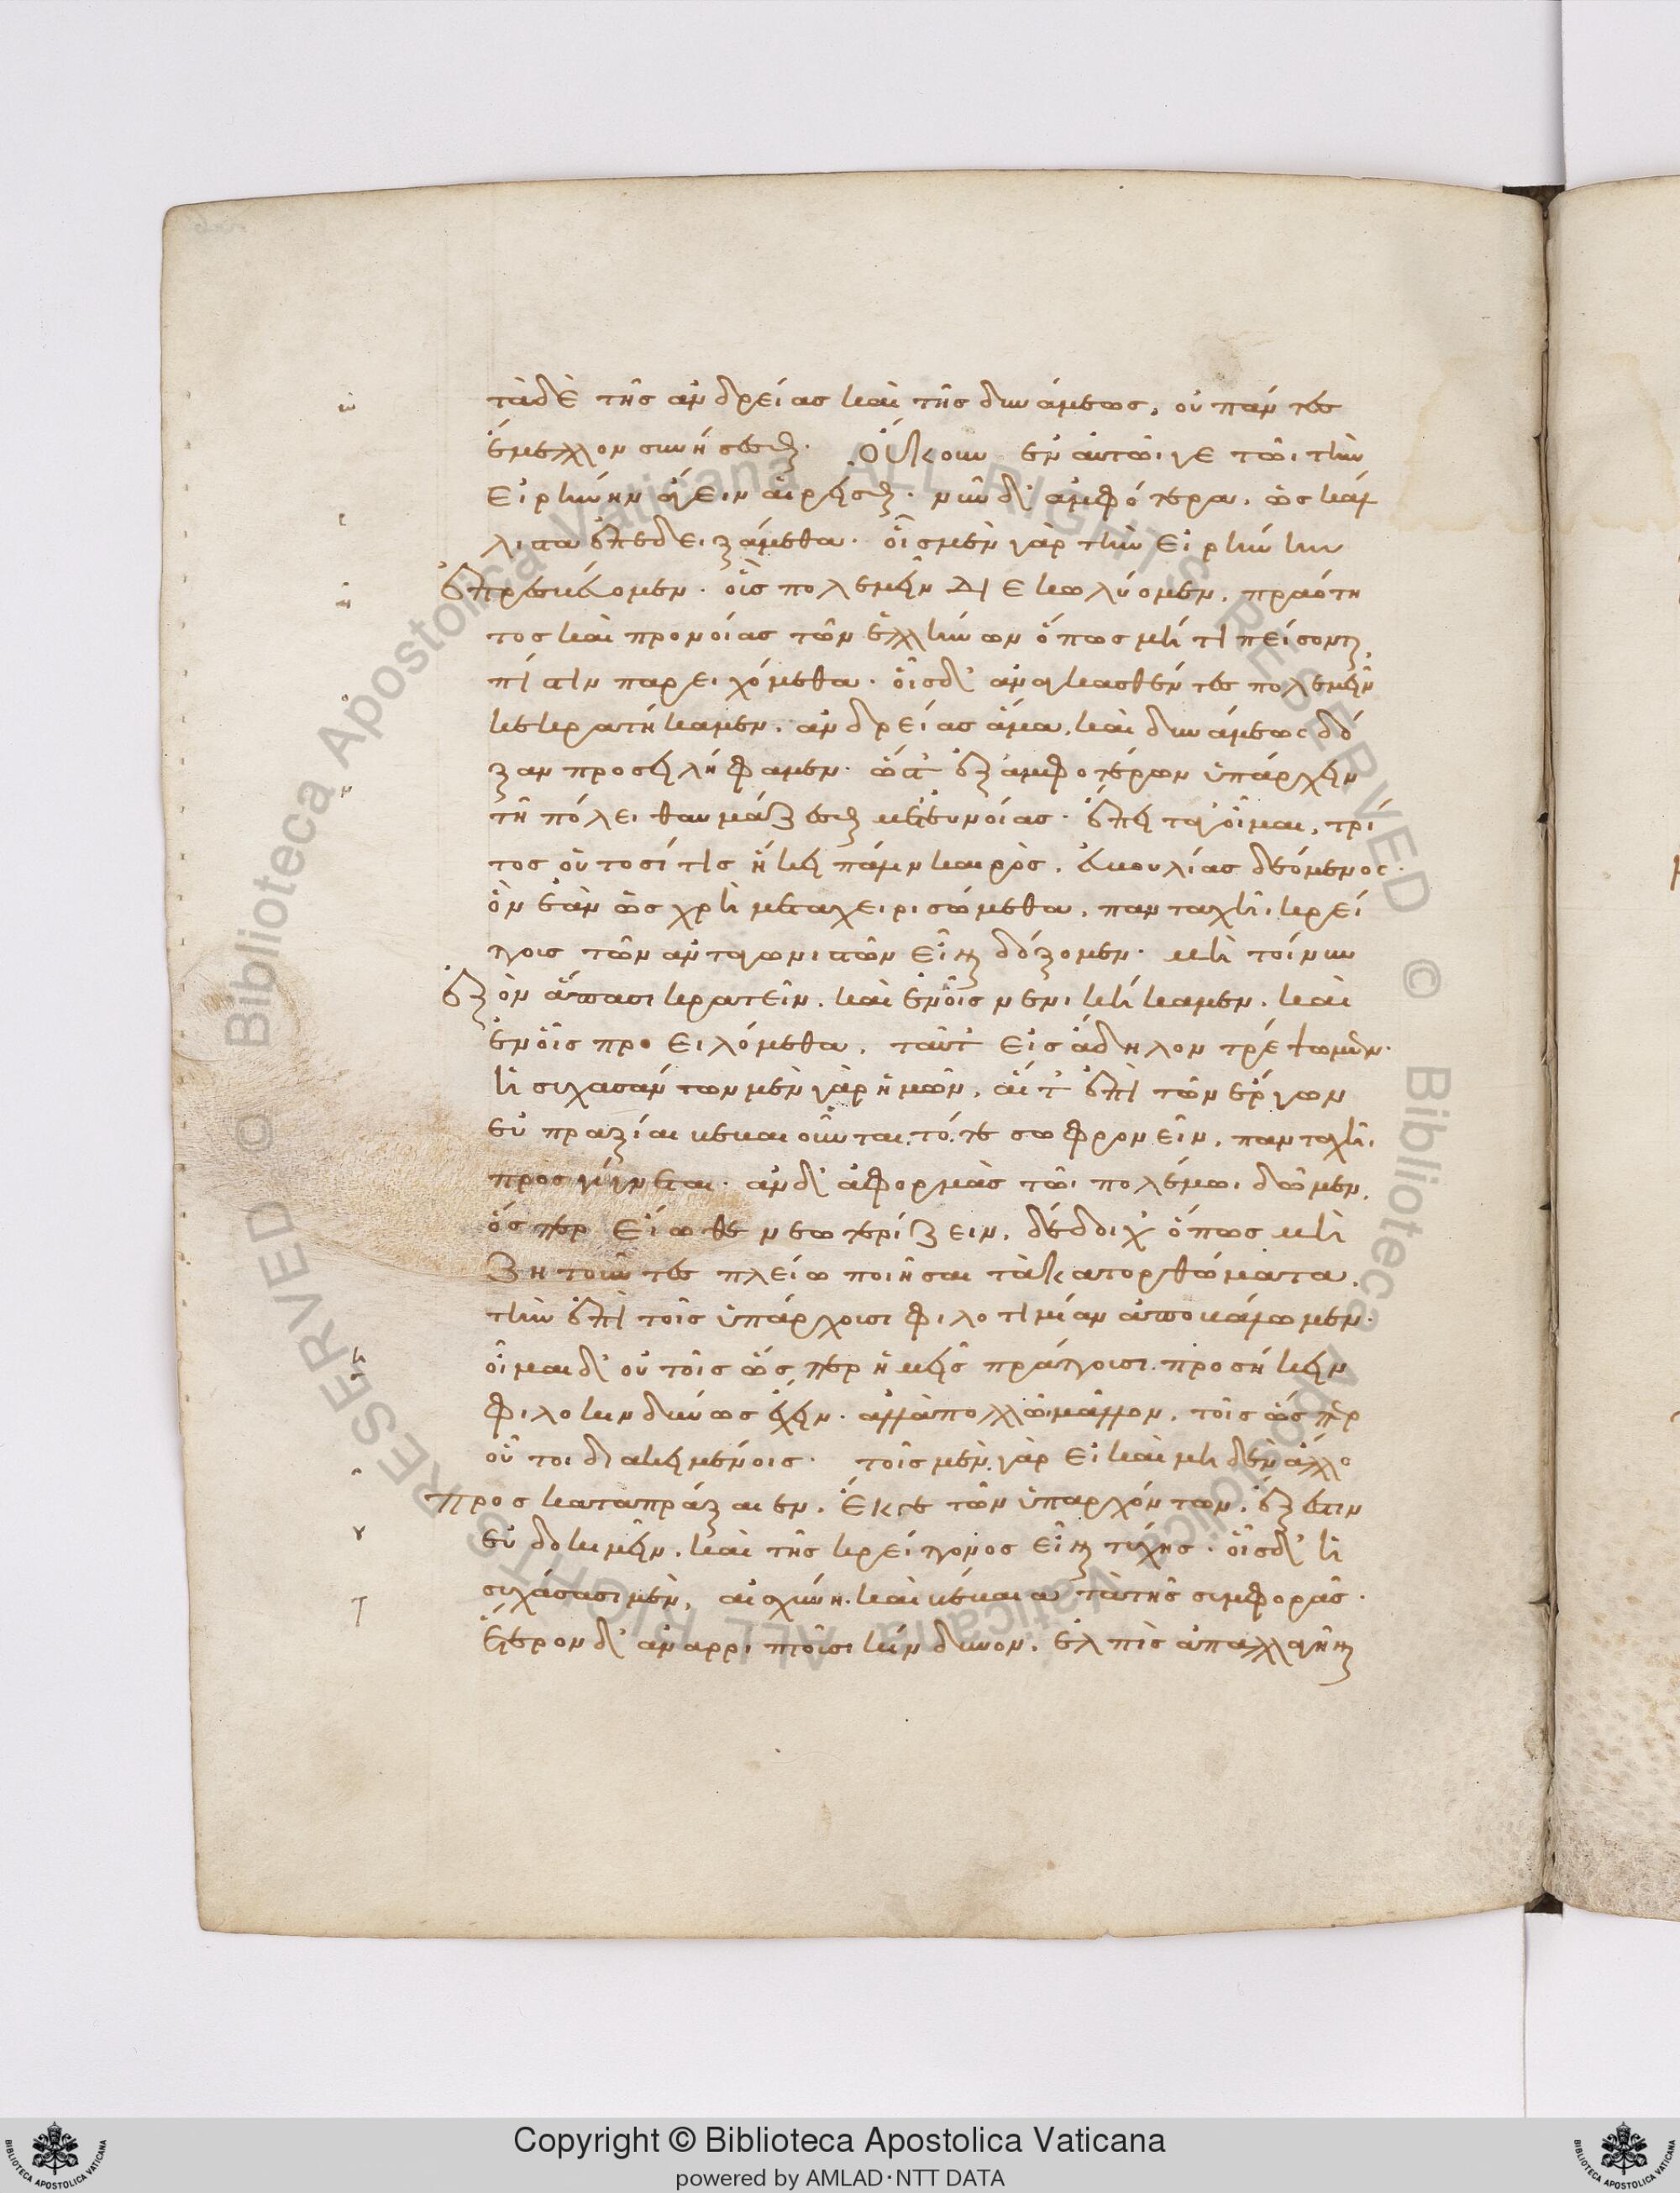 τὰ δὲ τῆς ἀνδρείας καὶ τῆς δυνάμεως, οὐ πάντες
ἔμελλον συνήσεσθαι. Οὔκουν ἐν αὐτῶι γε τῶι τὴν
εἰρήνην ἄγειν αἱρήσεσθαι. νῦν δ' ἀμφότερα, ὡς κάλ
λιστα ἐπεδειξάμεθα. οἷς μὲν γὰρ τὴν εἰρήνην
ἐπρεσβεύομεν. οἷς πολεμεῖν διεκωλύομεν, πραότη
τος καὶ προνοίας τῶν ἑλλήνων ὅπως μή τι πείσονται,
πίστιν παρειχόμεθα. οἷς δ' ἀναγκασθέντες πολεμεῖν
κεκρατήκαμεν, ἀνδρείας ἅμα, καὶ δυνάμεως δό
ξαν προσειλήφαμεν. ὥστ' ἐξ ἀμφοτέρων ὑπάρχειν
τῆ πόλει θαυμάζεσθαι μετ' εὐνοίας. ἔπειτ' οἶμαι, τρί
τος οὑτοσί τις ἥκει πάλιν καιρὸς, εὐβουλίας δεόμενος.
ὃν ἐὰν ὡς χρὴ μεταχειρισώμεθα, πανταχῆι κρεί
ττους τῶν ἀνταγωνιστῶν εἶναι δόξομεν. μὴ τοίνυν
ἐξὸν ἅπασι κρατεῖν, καὶ ἐν οἷς νενικήκαμεν, καὶ
ἐν οἷς προειλόμεθα, ταῦτ' εἰς ἄδηλον τρέψωμεν.
ἡσυχασάντων μὲν γὰρ ἡμῶν, αἵ τ' ἐπὶ τῶν ἔργων
εὐπραξίαι βεβαιοῦνται, τό, τε σωφρονεῖν, πανταχῆι
προσγίγνεται. ἂν δ' ἀφορμὰς τῶι πολέμωι δῶμεν,
ὅσπερ εἴωθε νεωτερίζειν, δέδοιχ' ὅπως μὴ
ζητοῦντες πλείω ποιῆσαι τὰ κατορθώματα,
τὴν ἐπὶ τοῖς ὑπάρχουσι φιλοτιμίαν ἀποβάλωμεν.
οἶμαι δ' οὐ τοῖς ὥσπερ ἡμεῖς πράττουσι προσήκειν
φιλοκινδύνως ἔχειν. ἀλλὰ πολλῶι μᾶλλον, τοῖς ὥσπερ
οὗτοι διακειμένοις. τοῖς μὲν γὰρ εἰ καὶ μηδὲν ἄλλο
προσκαταπράξαιεν, ἔκ γε τῶν ὑπαρχόντων, ἔξεστιν
εὐδοκιμεῖν, καὶ τῆς κρείττονος εἶναι τύχης. οἷς δ' ἡ
συχάσασι μὲν, αἰσχύνη καὶ βέβαια τὰ τῆς συμφορᾶς.
ἕτερον δ' ἀναρριπτοῦσι κίνδυνον, ἐλπὶς ἀπαλλαγῆναι